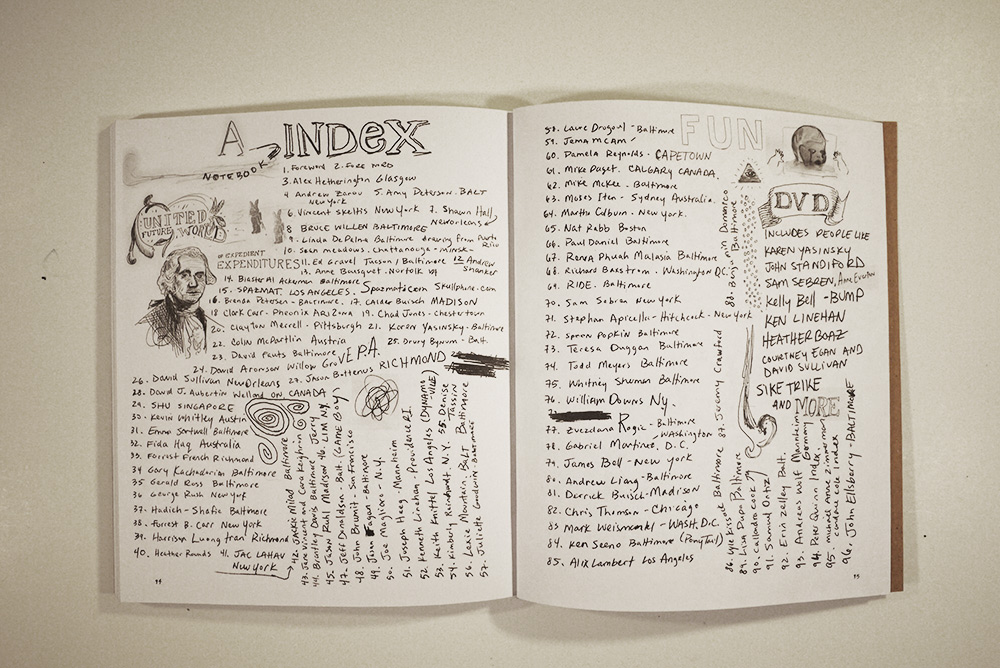 A INDEX
NOTEBOOK
1. Foreword 2.
3. Alex Hetherington Glasgow
4 Andrew Zarou New York 5. Amy Peterson. BALT
6. Vincent Skeltis New York 7. Shawn Hall, New Orleans
8 BRUCE WILLEN BALTIMORE
9. Linda DePalma Baltimore drawing from Puerto Rico
10. Sean Meadows. Chattanooga - Minsk
UNITED FUTURE WORLD
OF EXPEDIENT EXPENDITURES
11. Ed Gravel Tucson / Baltimore 12 Andrew Shanker
13. Anne Bousquet - Norfolk VA
14. Blaster Al Ackerman Baltimore
15. SPAZMAT. LOS ANGELES. Spazmat.com Skullphone.com
16. Brenda Petersen - Baltimore. 17. Calder Buisch MADISON
18 Clark Carr - Phoenix ARIZONA 19. Chad Jones - Chestertown
20. Clayton Merrell - Pittsburgh 21. Karen Yasinsky - Baltimore
22. Colin McPartlin Austria 25. Drury Bynum - Balt.
23. David Fauts Baltimore
24. David Aronson Willow Grove P.A.
26. David Sullivan New Orleans 27. Jason Bottenus RICHMOND
28. David J. Aubertin Welland ON CANADA
29. SHU SINGAPORE
30. Kevin Whitley Austin
31. Emma Sartwell Baltimore
32. Fida Haq Australia
33. Forrest French Richmond
34 Gary Kachadorian Baltimore
35 Gerald Ross Baltimore
36 George Rush New York
37. Hadieh Shafie Baltimore
38. Forrest B. Carr New York
39. Harrison Luong Tran Richmond
40. Heather Rounds 41. JAC LAHAV New York
42. Jackie Milad Baltimore
43. Jose Vincent and Cara
44. Brantley Davis Baltimore Jerry
45. Jason Ruhl Madison 46. LIM NY
47. Jeff Donaldson - Balt. (GAME BOY)
48. John Brumit - San Francisco
49. Jason Fagan - Baltimore
50. Joe Magliaro - N.Y.
51. Joseph Haeg - Mannheim
52. Kenneth Linehan - Providence RI
53. Keith Knittel Los Angeles (DYNAMOVILLE)
54. Kimberly Reinhardt. N.Y. 55. Denise Tassin
56. Lexie Mountain. BALT
57. Juliette Goodwin Baltimore
FUN
58. Laure Drogoul - Baltimore
59. Jena McAm
60. Pamela Reynolds - CAPETOWN
61. Mike Paget. CALGARY CANADA.
62. Mike McKee - Baltimore
63. Moses Iten - Sydney Australia.
64. Martha Colburn - New York.
65. Nat Rabb Boston
66. Paul Daniel Baltimore
67. Renna Phuah Malasia Baltimore
68. Richard Barstrom. Washington D.C.
69. RIDE. Baltimore
70. Sam Sebren New York
71. Stephan Apicella-Hitchcock - New York
72. Spoon Popkin Baltimore
73. Teresa Duggan Baltimore
74. Todd Meyers Baltimore
75. Whitney Shuman Baltimore
76. William Downs Ny.
77. Zvezdana Rogic - Baltimore
78. Gabriel Martinez, D.C. Washington
79. James Bell - New York
80. Andrew Liang - Baltimore
81. Derrick Buisch - Madison
82. Chris Thomson - Chicago
83 Mark Weismonski - WASH. D.C.
84. Ken Seeno Baltimore (Ponytail)
85. Alix Lambert Los Angeles
86. Lyle Kissack Baltimore 87. Jeremy Crawford
88. Benjamin Domanico Baltimore
89. Lisa Dupas Baltimore
90. Calladra Cook
91. Samuel Ortiz
92. Erwin Zelley Balt.
93. Andreas Wolf Mannheim
94. Peter Quinn Index
95. Michael Anne Zimmerman Candace Cole Index
96. John Ellsberry - BALTIMORE
DVD
INCLUDES PEOPLE LIKE
KAREN YASINSKY
JOHN STANDIFORD
SAM SEBREN, Anne Everton
Kelly Bell - BUMP
KEN LINEHAN
HEATHER BOAZ
COURTNEY EGAN AND
DAVID SULLIVAN
SIKE TRIKE
AND MORE